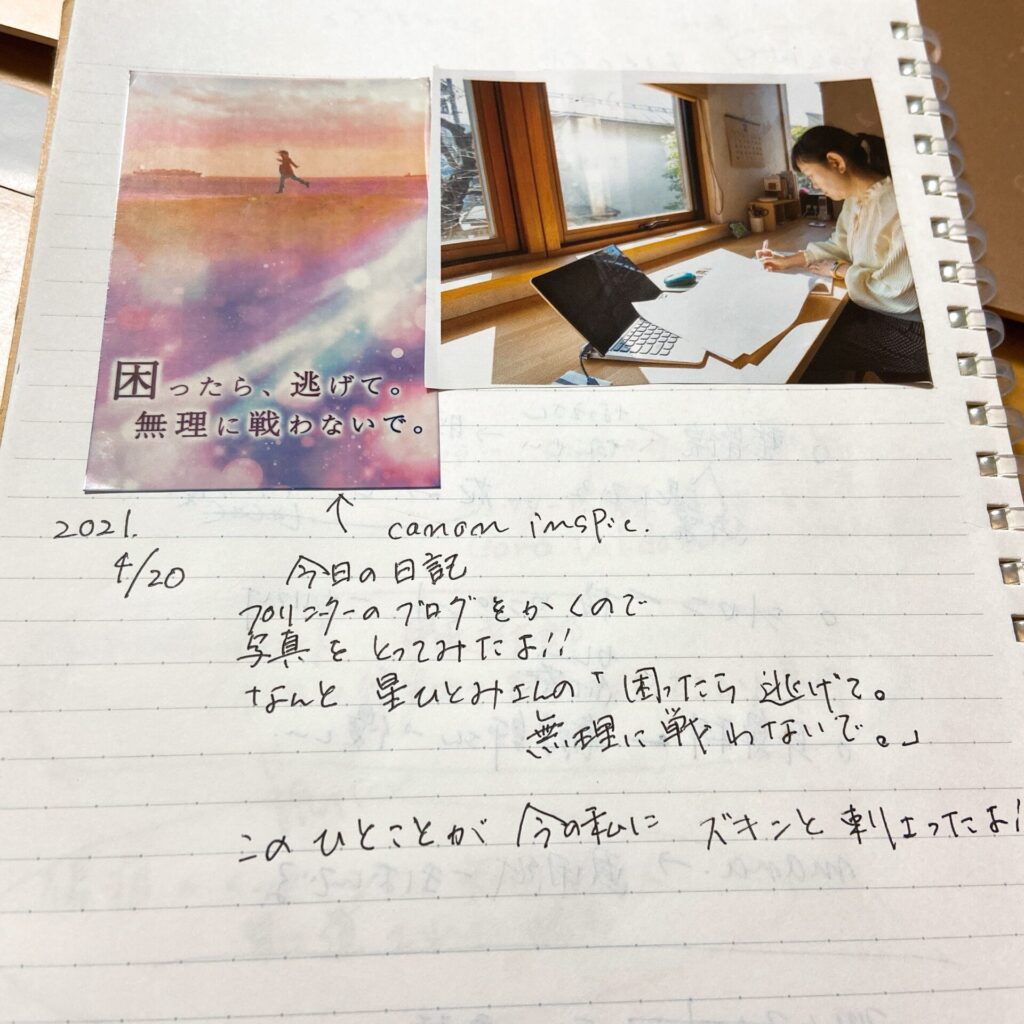 困ったら、逃げて。
無理に戦わないで。
2021.
↑ canon inspic.
4/20
今日の日記
プリンターのブログをかくので
写真をとってみたよ!!
なんと 星ひとみさんの「困ったら 逃げて。
無理に戦わないで。」
このひとことが 今の私に ズキンと刺さったよ!